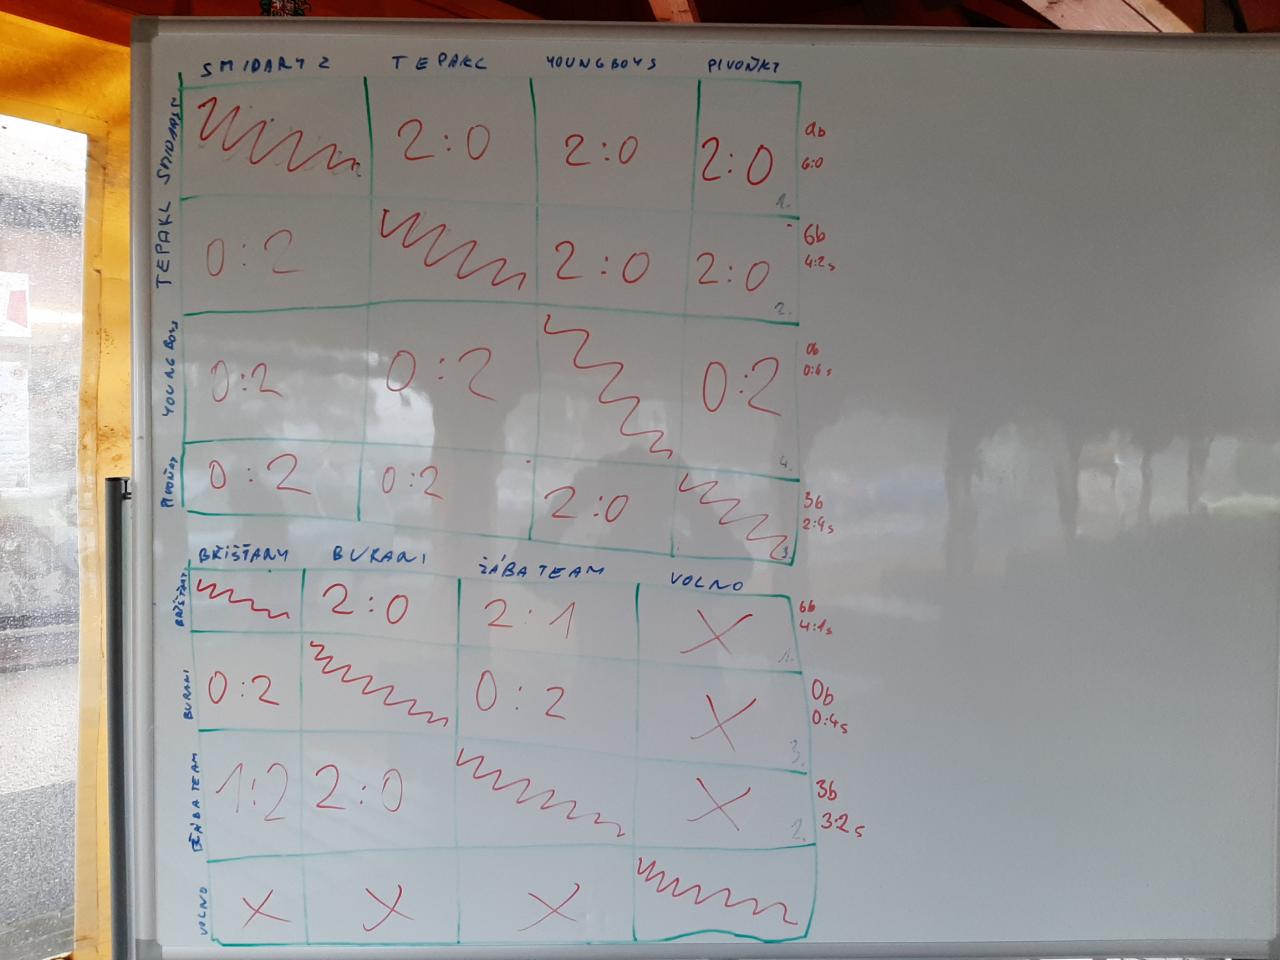 SMIDARY 2 TEPAKL YOUNGBOYS PIVOŇKY
2:0 2:0 2:0 9b
6:0
1.
TEPAKL 0:2 2:0 2:0 6b
4:2s
2.
YOUNG BOYS 0:2 0:2 0:2 0b
0:6s
4.
0:2 0:2 2:0 3b
2:4s
3.
BŘIŠŤANY BURANI ŽÁBA TEAM VOLNO
BŘIŠŤANY 2:0 2:1 X 6b
4:1s
1.
BURANI 0:2 0:2 X 0b
0:4s
3.
ŽÁBA TEAM 1:2 2:0 X 3b
3:2s
2.
VOLNO X X X